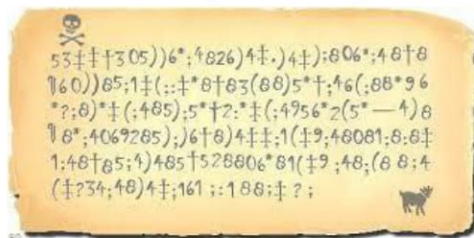 53‡‡†305))6*;4826)4‡.)4‡);806*;48†8
¶60))85;1‡(;:‡*8†83(88)5*†;46(;88*96
*?;8)*‡(;485);5*†2:*‡(;4956*2(5*—4)8
¶8*;4069285);)6†8)4‡‡;1(‡9;48081;8:8‡
1;48†85;4)485†528806*81(‡9;48;(88;4
(‡?34;48)4‡;161;:188;‡?;